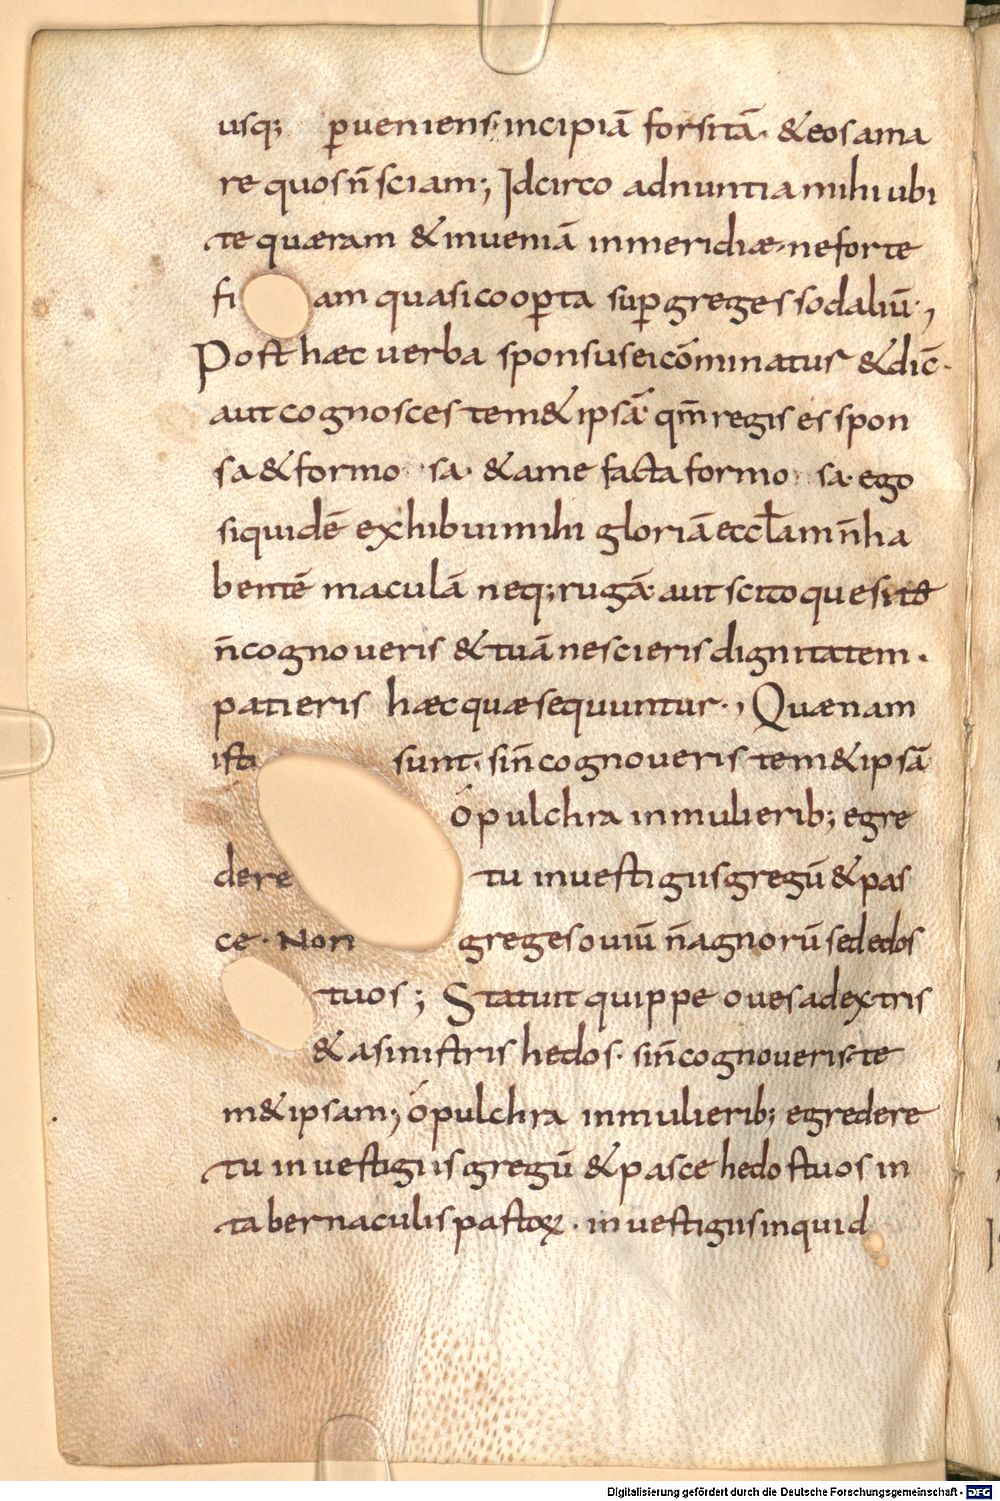 usq; ꝑueniens·incipiā forsitā· &eosama
re quosn̄sciam; Idcirco adnuntiamihiubi
te quæram &inueniā inmeridiæ·neforte
fi am quasicooꝑta suꝑgregessodaliū·,
Posthæc uerba sponsuseicōminatur &dic̄·
autcognosces tem&ipsā· qm̄regis es spon
sa&formo sa· &ame factaformo sa·ego
siquidē exhibuimihi gloriāeccłamn̄ha
bentē maculā neq;rugā·autscitoquesit&
n̄cognoueris &tuānescierisdignitatem·
patieris hæcquæsequuntur·, Quænam
isti sunt·sin̄cognoueris tem&ipsā
ópulchra inmulierib; egre
dere tu inuestigiisgregū&pas
ce· Non gregesouiū n̄agnorū sededos
tuos; Statuit quippe ouesadextris
&asinistris hedos· sin̄cognoueris·te
m&ipsam; ópulchra inmulierib; egredere
tu inuestigiisgregū &pasce hedostuos in
tabernaculispastoꝝ· inuestigiisinquid
Digitalisierung gefördert durch die Deutsche Forschungsgemeinschaft - DFG